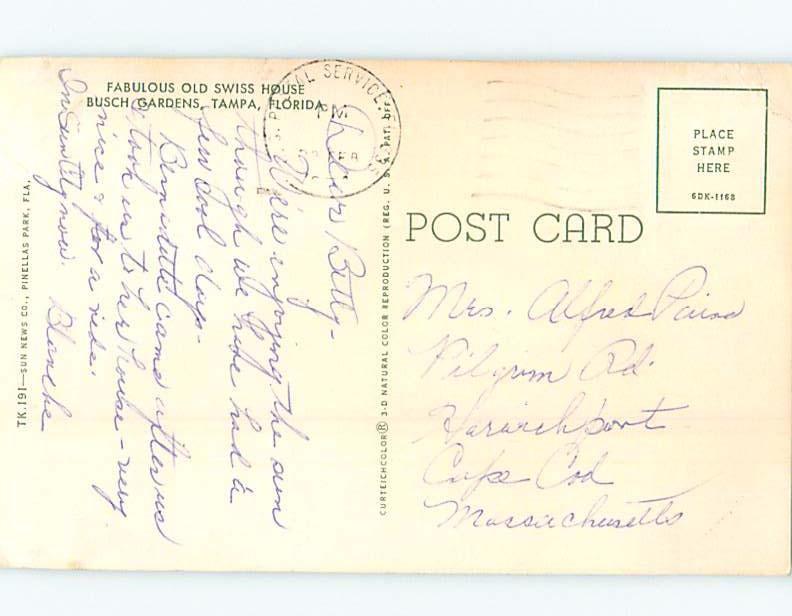 FABULOUS OLD SWISS HOUSE
BUSCH GARDENS, TAMPA, FLORIDA
Dear Betty-
We're enjoying the sun
though we have had a
few cool days.
Bernadette came after us
& took us to her house - very
nice & for a ride.
In Sun City now. Blanche
TK.191—SUN NEWS CO., PINELLAS PARK, FLA.
POSTAL SERVICE
PM
CURTEICHCOLOR® 3-D NATURAL COLOR REPRODUCTION (REG. U. S. A. PAT. OFF.
POST CARD
PLACE
STAMP
HERE
6DK-1168
Mrs. Alfred
Pilgrim Rd.
Harwichport
Cape Cod
Massachusetts